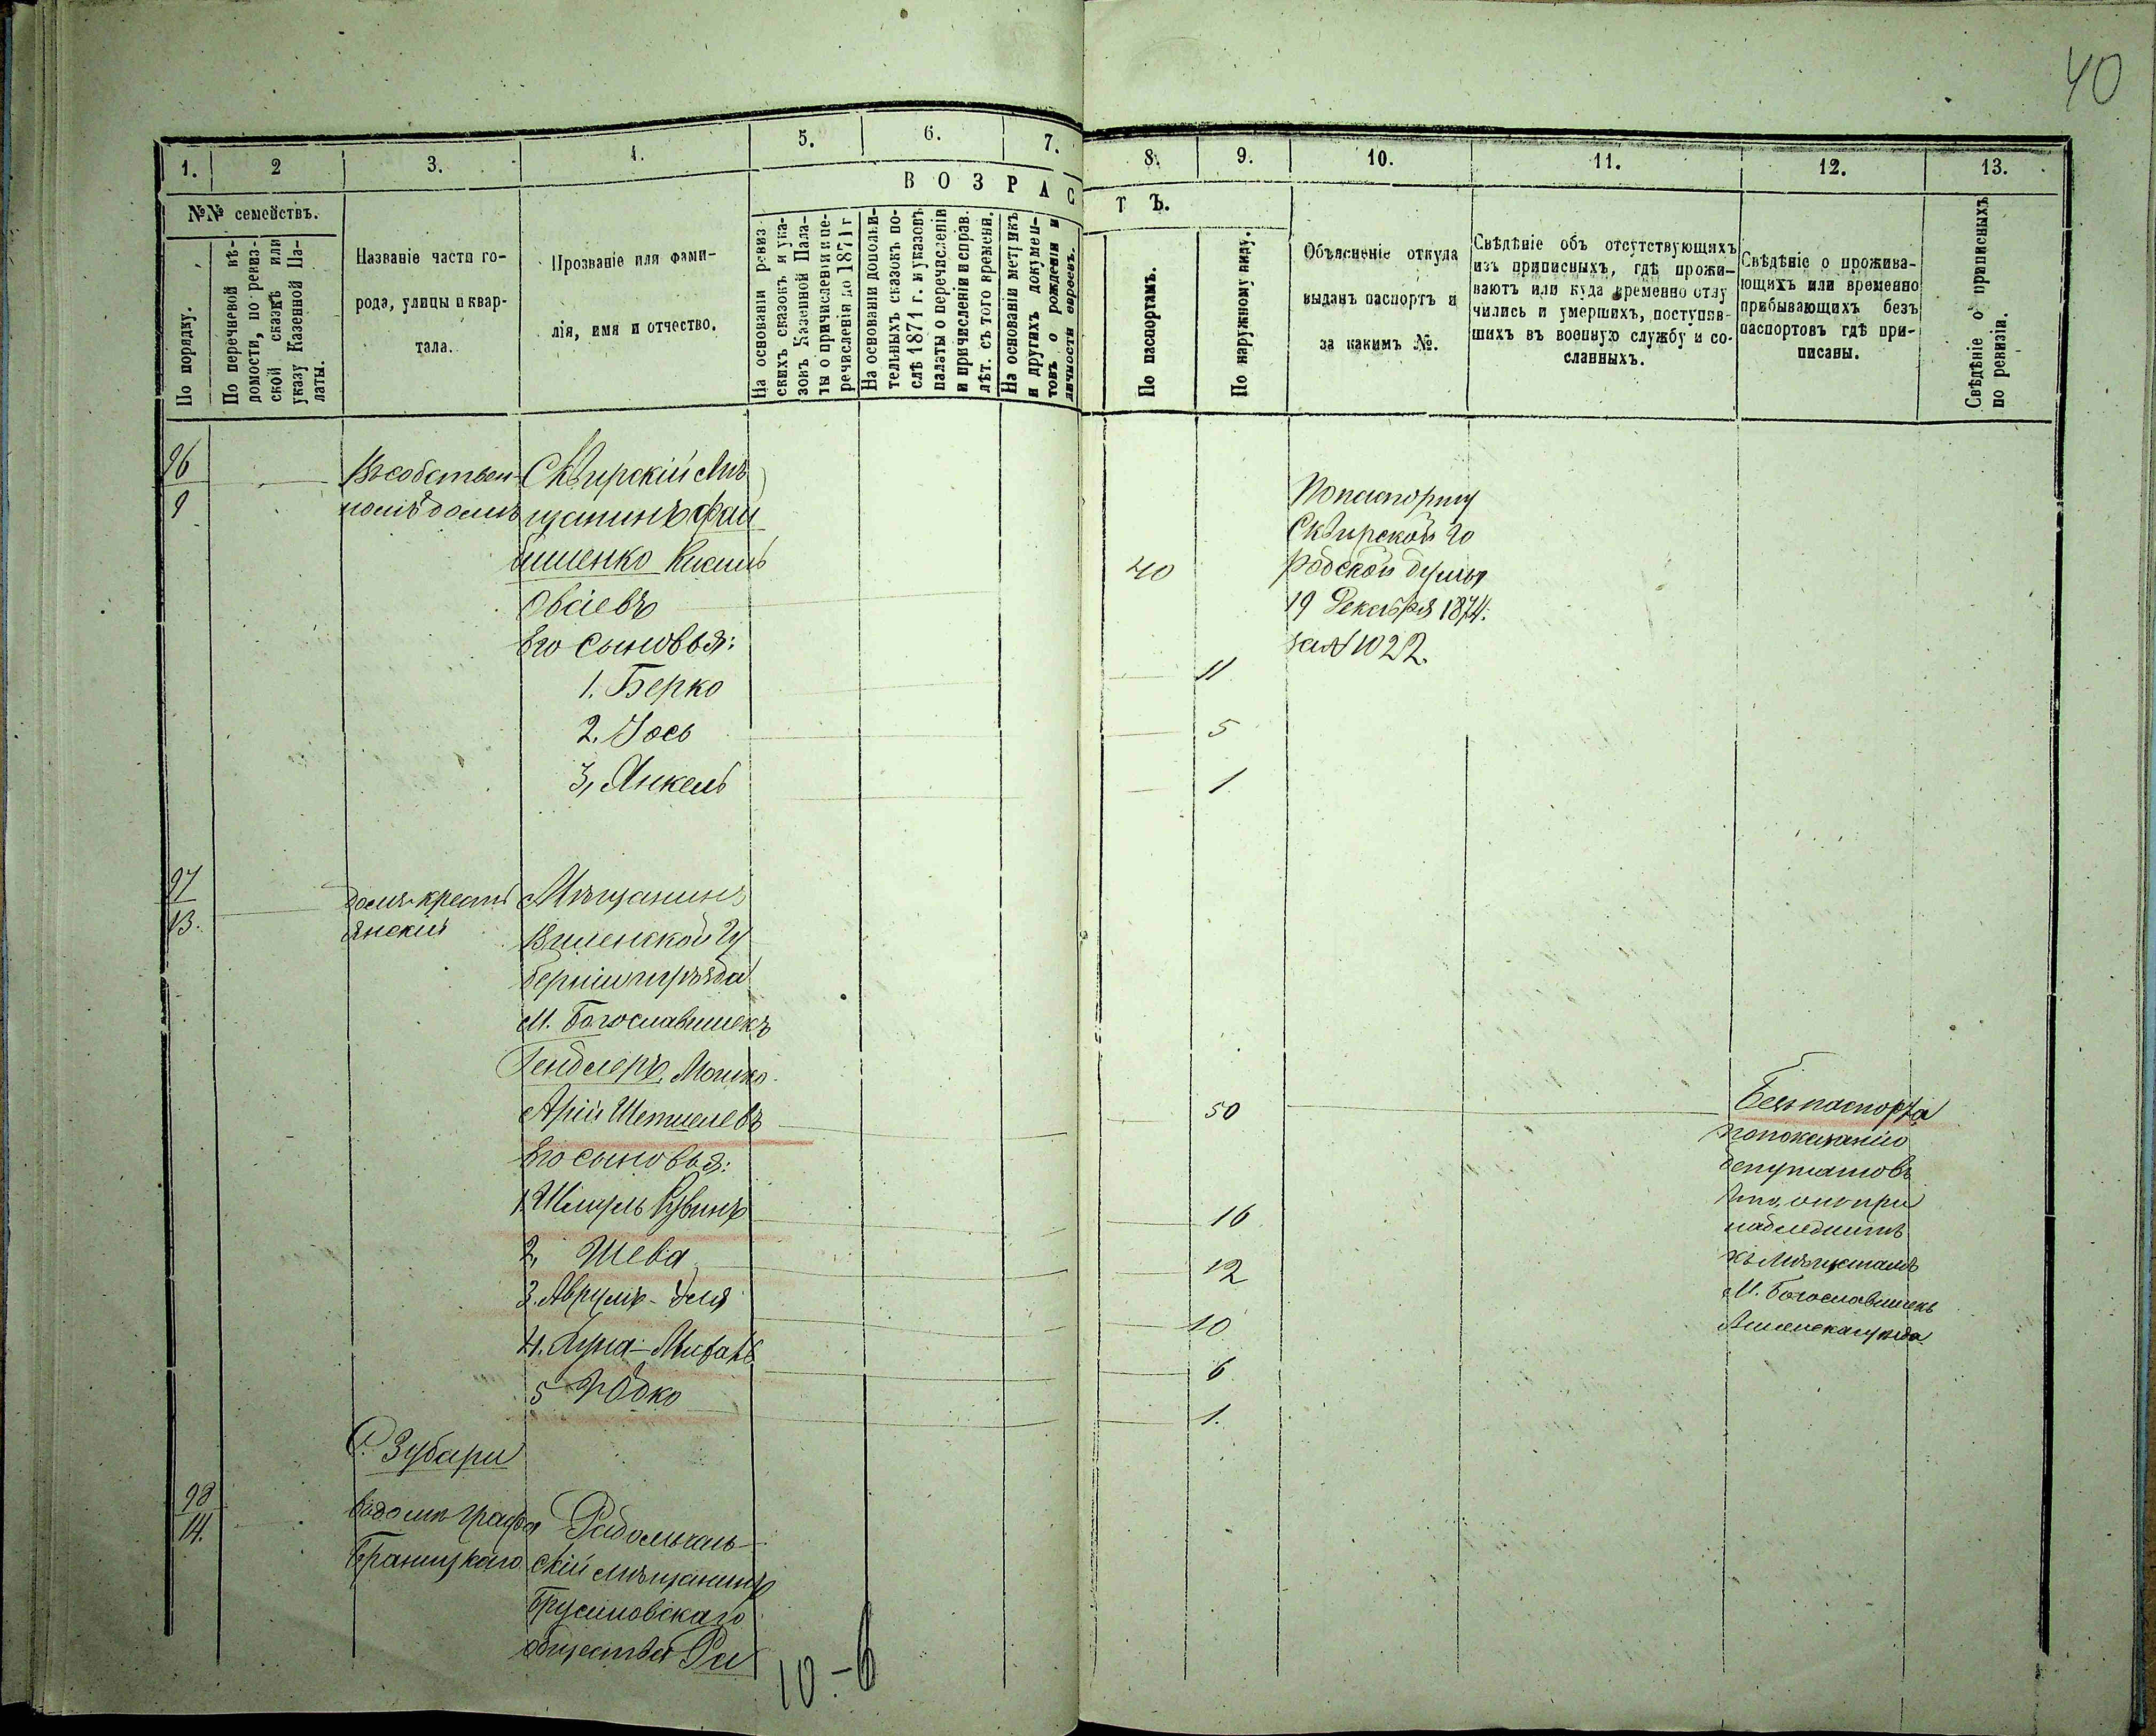 40
1.
2
3.
4.
5.
6.
7.
8.
9.
10.
11.
12.
13.
ВОЗРАС
ТЪ.
№№ семействъ.
По порядку.
По перечневой вѣ-
домости, по ревиз-
ской сказкѣ или
указу Казенной Па-
латы.
Названіе части го-
рода, улицы и квар-
тала.
Прозваніе или фами-
лія, имя и отчество.
На основаніи ревиз-
скихъ сказокъ и ука-
зовъ Казенной Пала-
ты о причисленіи и пе-
речисленіи до 1871 г.
На основаніи дополни-
тельныхъ сказокъ по-
слѣ 1871 г. и указовъ
палаты о перечисленіи
и причисленіи и справ.
лѣт. съ того времени.
На основаніи метрикъ
и другихъ докумен-
товъ о рожденіи и
личности евреевъ.
По паспортамъ.
По наружному виду.
Объясненіе откуда
выданъ паспортъ и
за какимъ №.
Свѣдѣніе объ отсутствующихъ
изъ приписныхъ, гдѣ прожи-
ваютъ или куда временно отлу
чились и умершихъ, поступив-
шихъ въ военную службу и со-
сланныхъ.
Свѣдѣніе о прожива-
ющихъ или временно
прибывающихъ безъ
паспортовъ гдѣ при-
писаны.
Свѣдѣніе о приписныхъ
по ревизіи.
96
9
Въ собствен-
номъ домѣ
Сквирскій мѣ
щанинъ Фай
бишенко
Его сыновья:
1. Берко
2. Іось
3, Янкель
40
11
5
1
По паспорту
Сквирской го
родской думы
19 Декабря 1874.
за № 1022.
97
13.
домъ кресть
янскій
Мѣщанинъ
Виленской гу
берніи
М. Богославишекъ
Гендлеръ, Мошко
Арій
Его сыновья:
1. Шмуль Рувинъ
2, Шева
3. Аврумъ-
4.
5 Юдко
50
16
12
10
6
1.
Безъ паспорта
по показанію
депутатовъ
что, онъ при
надлежитъ
къ мѣщанамъ
М. Богославишекъ
С. Зубари
98
14.
Въ домѣ графа
Браницкаго
Радомысль-
скій мѣщанинъ
Брусиловскаго
общества Ра
10-6